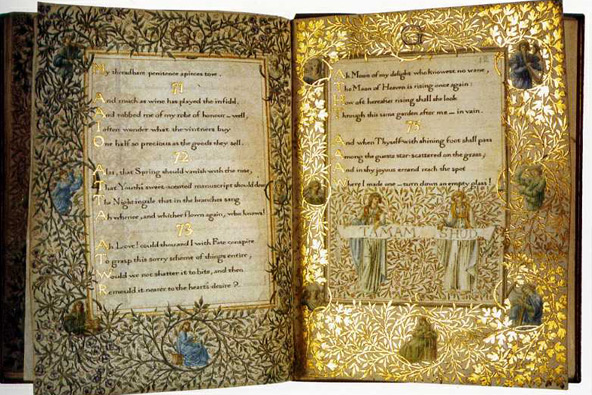 My thredbare penitence apieces tore.
71
And much as wine has played the infidel,
And robbed me of my robe of honour — well,
I often wonder what the vintners buy
One half so precious as the goods they sell.
72
Alas, that Spring should vanish with the rose,
That Youth's sweet-scented manuscript should close
The Nightingale that in the branches sang
Ah whence, and whither flown again, who knows!
73
Ah Love! could thou and I with Fate conspire
To grasp this sorry scheme of things entire,
Would we not shatter it to bits, and then
Remould it nearer to the hearts desire?
Ah Moon of my delight who knowest no wane,
The Moon of Heaven is rising once again:
How oft hereafter rising shall she look
Through this same garden after me — in vain.
75
And when Thyself with shining foot shall pass
Among the guests star-scattered on the grass,
And in thy joyous errand reach the spot
Where I made one — turn down an empty glass!
TAMAM SHUD